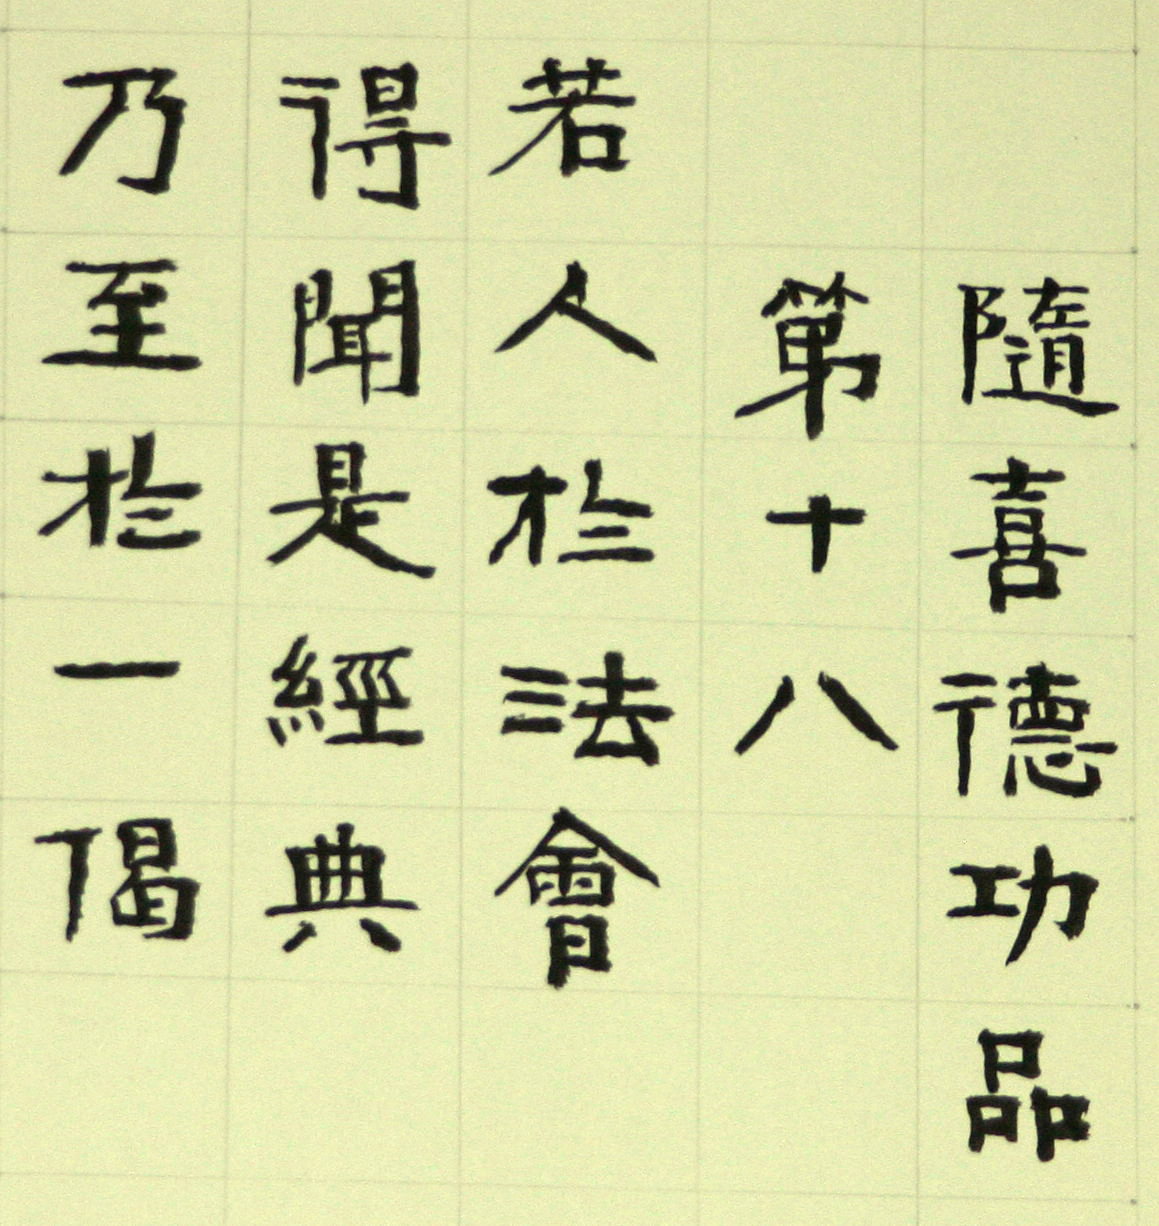 隨喜德功品
第十八
若人於法會
得聞是經典
乃至於一偈